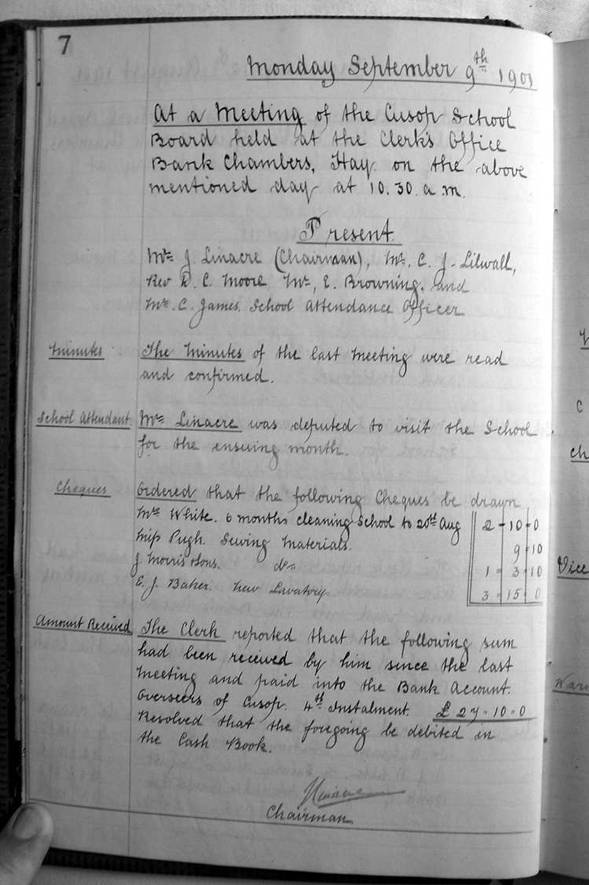 7
Monday September 9th 1901
At a Meeting of the Cusop School
Board held at the Clerk's Office
Bank Chambers, Hay on the above
mentioned day at 10.30. a.m.
Present.
Mr J. Linacre (Chairman), Mr. C. J. Lilwall,
Rev D. C. Moore Mr, E. Browning. and
Mr. C. James. School Attendance Officer
Minutes The Minutes of the last Meeting were read
and confirmed.
School Attendant Mr Linacre was deputed to visit the School
for the ensuing month.
Cheques Ordered that the following Cheques be drawn
Mrs White. 6 months cleaning School to 20th Aug 2-10-0
Miss Pugh. Sewing Materials. 9-10
J Morris & Sons. do 1-3-10
E. J. Baker. New Lavatory 3-15-0
Amount Received The Clerk reported that the following sum
had been received by him since the last
Meeting and paid into the Bank Account.
Overseers of Cusop. 4th Instalment. £27-10-0
Resolved that the foregoing be debited in
the Cash Book.
J Linacre
Chairman
Vice